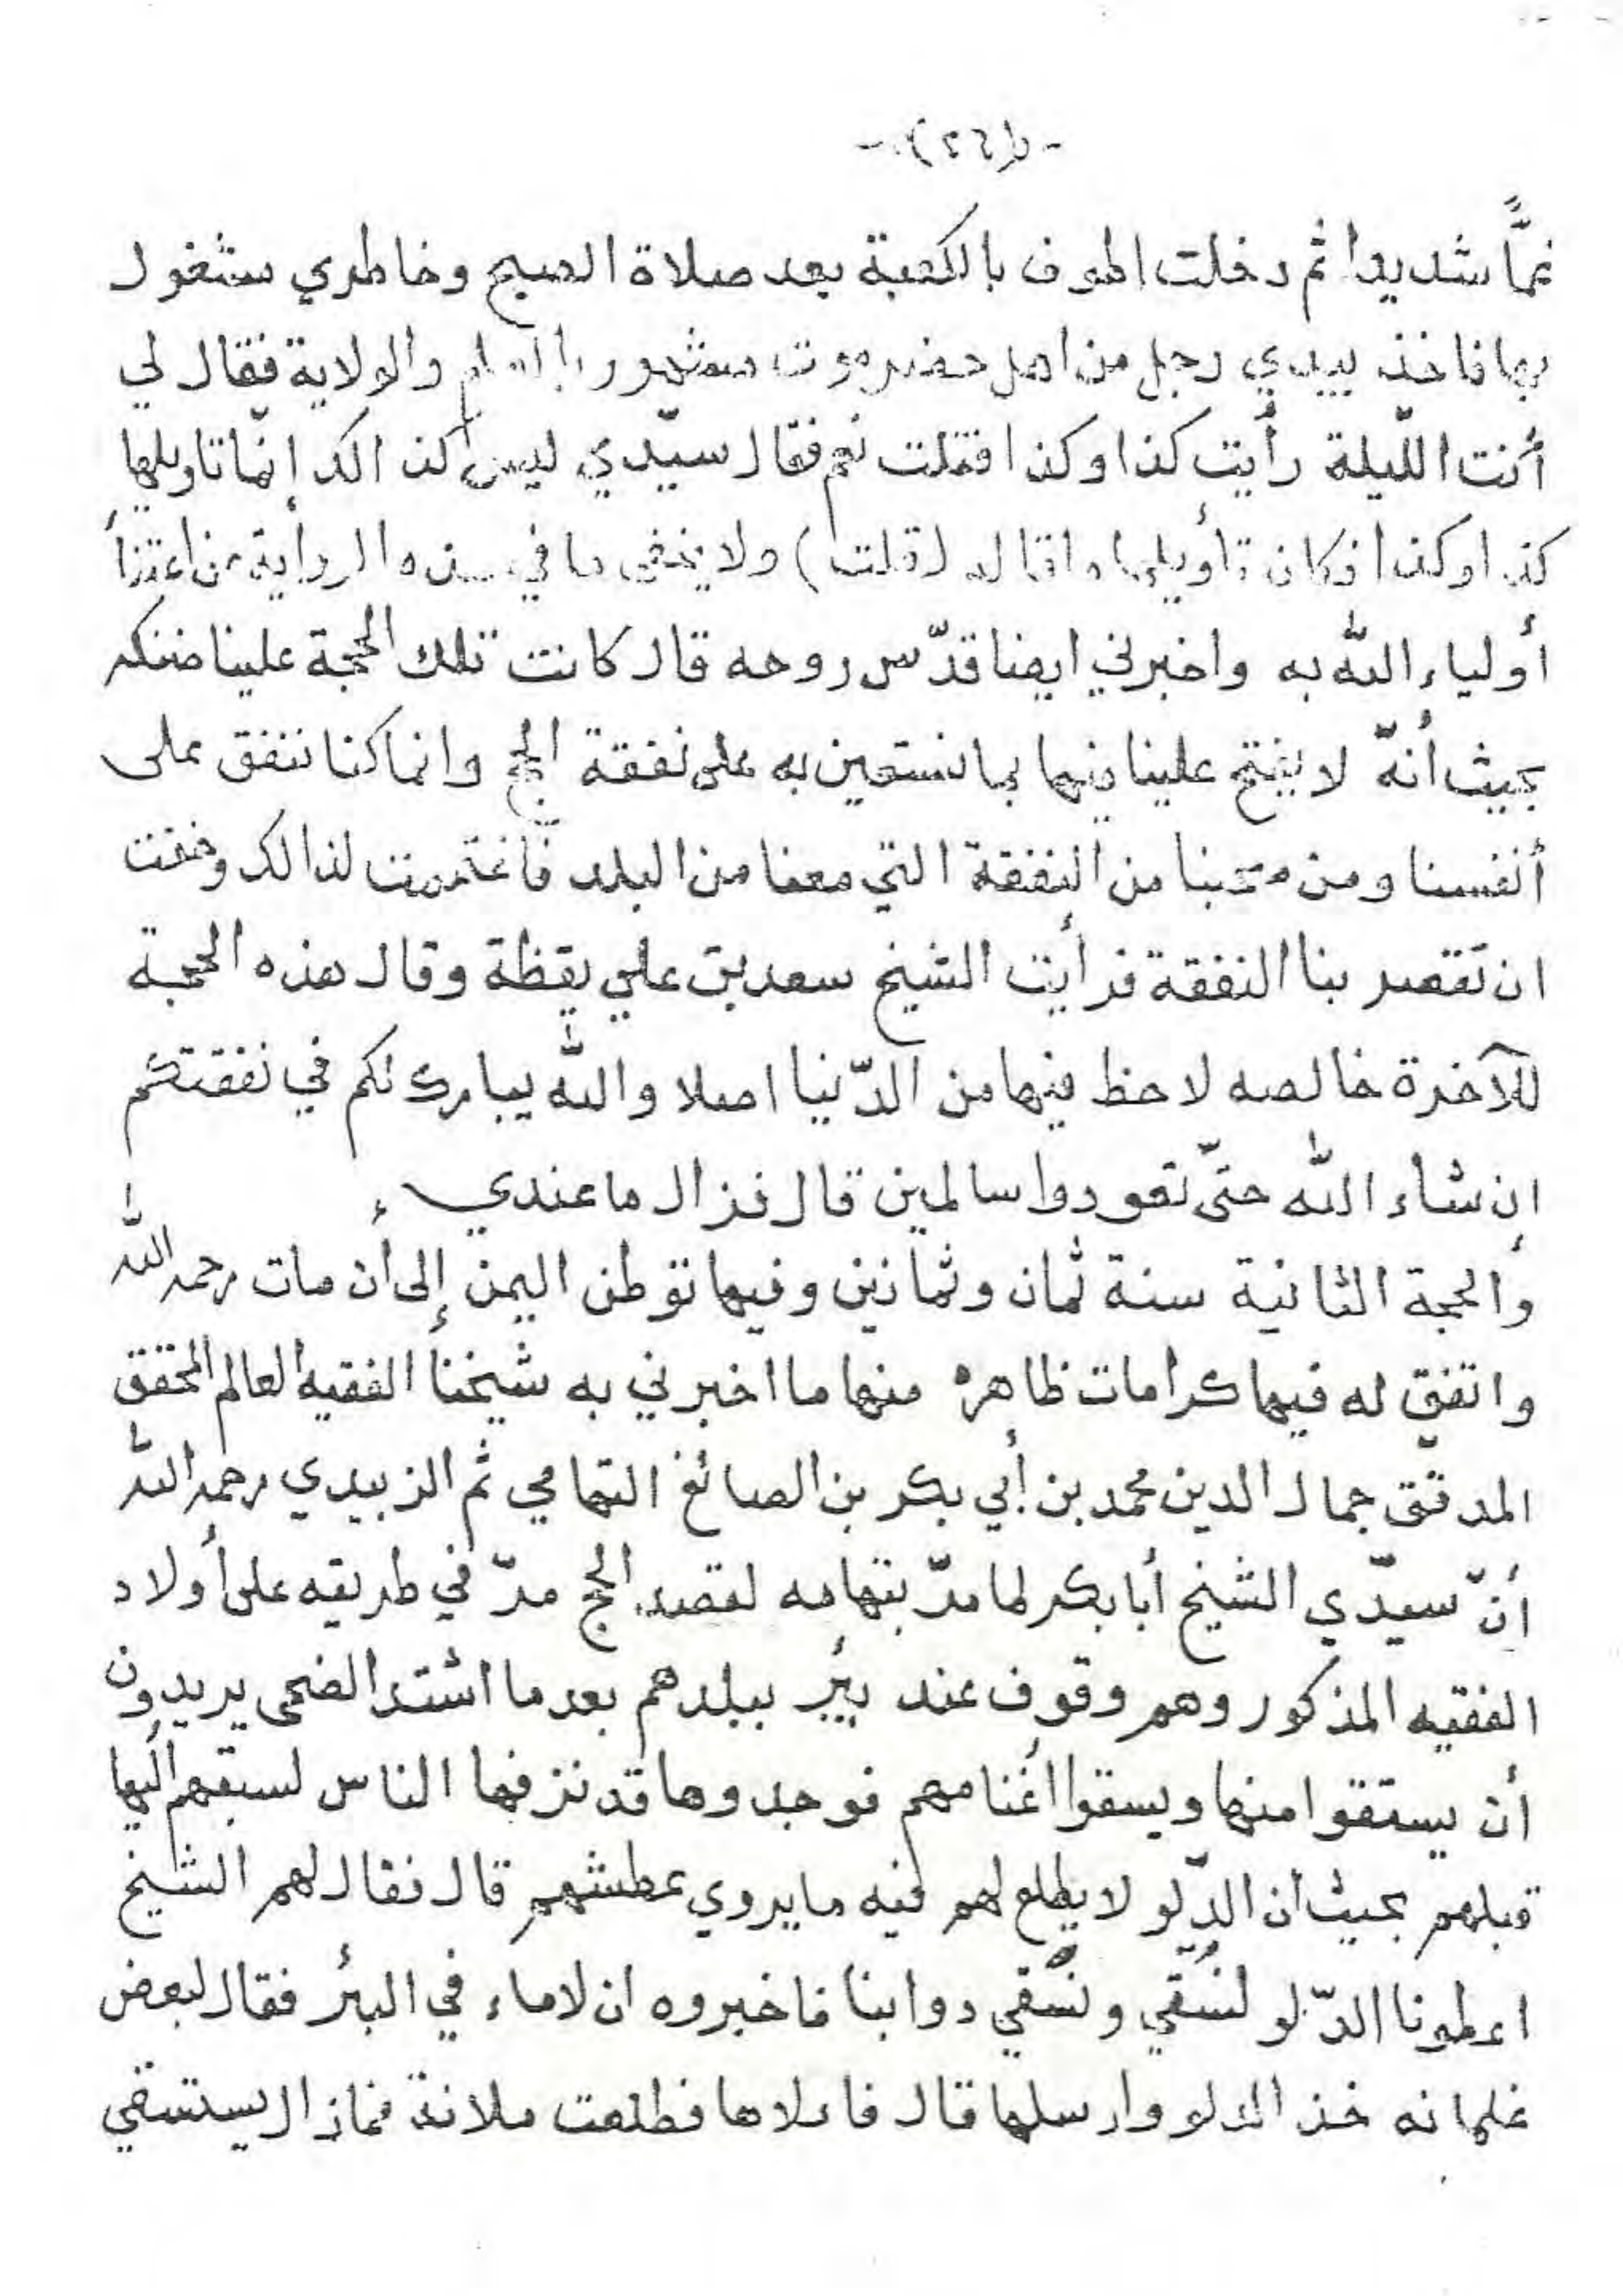 غمًّا شديدا ثم دخلت اطوف بالكعبة بعد صلاة الصبح وخاطري مشغول
بها فاخذ بيدي رجل من اهل حضرموت مشهور بالعلم والولاية فقال لي
أنت اللّيلة رأيت كذا وكذا فقلت نعم فقال سيّدي ليس كذالك إنمّا تاويلها
كذا وكذا فكان تأويلها ما قاله (قلت) ولا يخفى ما في هذه الرواية من اعتناأ
أولياء الله به واخبرني ايضا قدّس روحه قال كانت تلك الحجة علينا ضنكه
بحيث أنهّ لا يفتح علينا فيها بما نستعين به على نفقة الحج وانما كنا ننفق على
أنفسنا ومن صحبنا من النفقة التي معنا من البلد فاغتممت لذالك وخفت
ان تقصر بنا النفقة فرأيت الشيخ سعد بن علي يقظة وقال هذه الحجة
للآخرة خالصه لاحظ فيها من الدّنيا اصلا والله يبارك لكم في نفقتكم
إن شاء الله حتّى تعودوا سالمين قال فزال ما عندي ،
وألحجة الثانية سنة ثمان وثمانين وفيها توطن اليمن إلى أن مات رحمه الله
واتفق له فيها كرامات ظاهره منها ما اخبرني به شيخنا الفقيه العالم المحقق
المدقّق جمال الدين محمد بن أبي بكر بن الصائغ التهامي ثم الزبيدي رحمه الله
أنّ سيّدي الشيخ أبا بكر لما مرّ بتهامه لقصد الحج مرّ في طريقه على أولاد
الفقيه المذكور وهم وقوف عند بئر ببلدهم بعد ما اشتد الضحى يريدون
أن يستقوا منها ويسقوا أغنامهم فوجدوها قد نزفها الناس لسبقهم إليها
قبلهم بحيث ان الدّلو لا يطلع لهم فيه ما يروي عطشهم قال فقال لهم الشيخ
اعطونا الدّلو لنسُقي ونسُقي دوابنا فاخبروه ان لا ماء في البئر فقال لبعض
غلمانه خذ الدلو وارسلها قال فادلاها فطلعت ملانة فمازال يستسقي